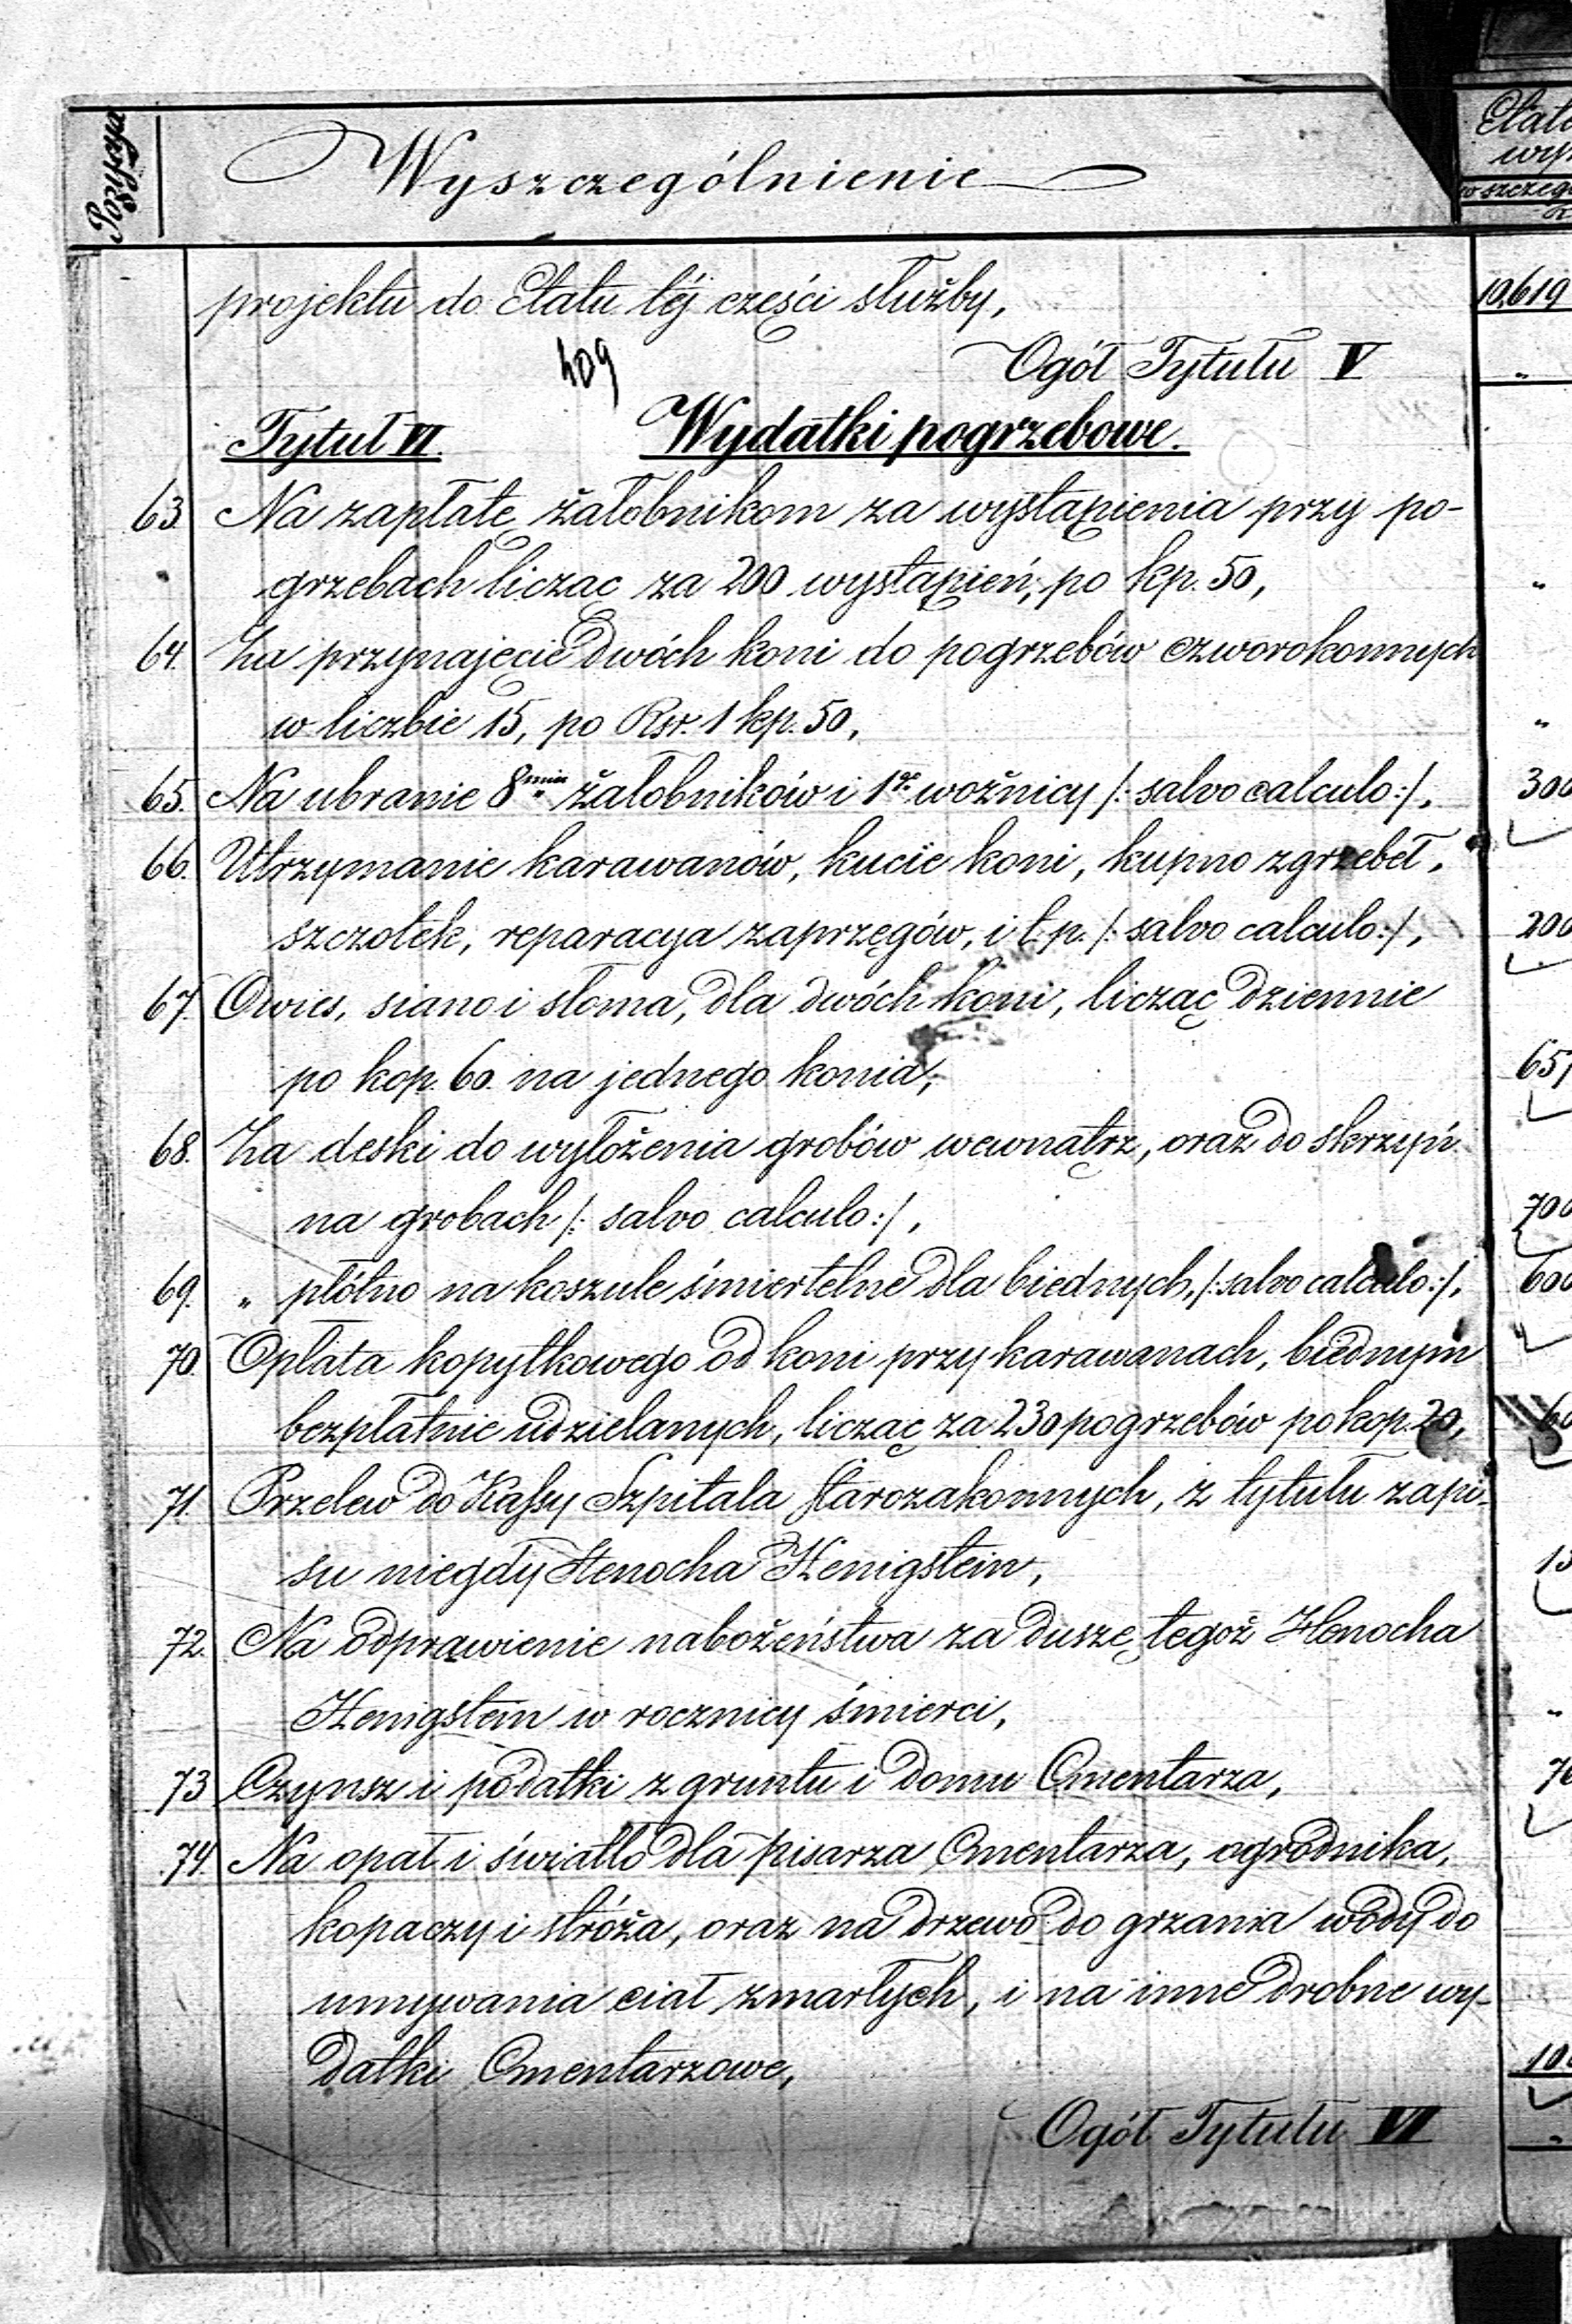 Pozycya
Wyszczególnienie
projektu do Etatu téj części służby,
10,619
Ogół Tytułu V
409
Tytuł VI. Wydatki pogrzebowe.
63. Na zapłatę żałobnikom za wystąpienia przy po-
grzebach licząc za 200 wystąpień, po kp. 50,
64. Za przynajęcie dwóch koni do pogrzebów czworokonnych
w liczbie 15, po Rsr. 1 kp. 50,
65. Na ubranie 8miu żałobników i 1go woźnicy /: salvo calculo :/, 300
66. Utrzymanie karawanów, kucie koni, kupno zgrzebeł,
szczotek, reparacya zaprzęgów, i t. p. /: salvo calculo :/, 200
67. Owies, siano i słoma, dla dwóch koni, licząc dziennie
po kop. 60. na jednego konia,
68. Za deski do wyłożenia grobów wewnątrz, oraz do skrzyń
na grobach /: salvo calculo :/, 700
69. „ płótno na koszule śmiertelne dla biednych, /: salvo calculo :/, 600
70. Opłata kopytkowego od koni przy karawanach, biednym
bezpłatnie udzielanych, licząc za 230 pogrzebów po kop. 20,
71. Przelew do Kassy Szpitala Starozakonnych, z tytułu zapi-
su niegdy Henocha Henigstein,
72. Na odprawienie nabożeństwa za duszę tegoż Henocha
Henigstein w rocznicy śmierci,
73. Czynsz i podatki z gruntu i domu Cmentarza,
74. Na opał i światło dla pisarza Cmentarza, ogrodnika,
kopaczy i stróża, oraz na drzewo do grzania wody do
umywania ciał zmarłych, i na inne drobne wy-
datki Cmentarzowe,
Ogół Tytułu VI